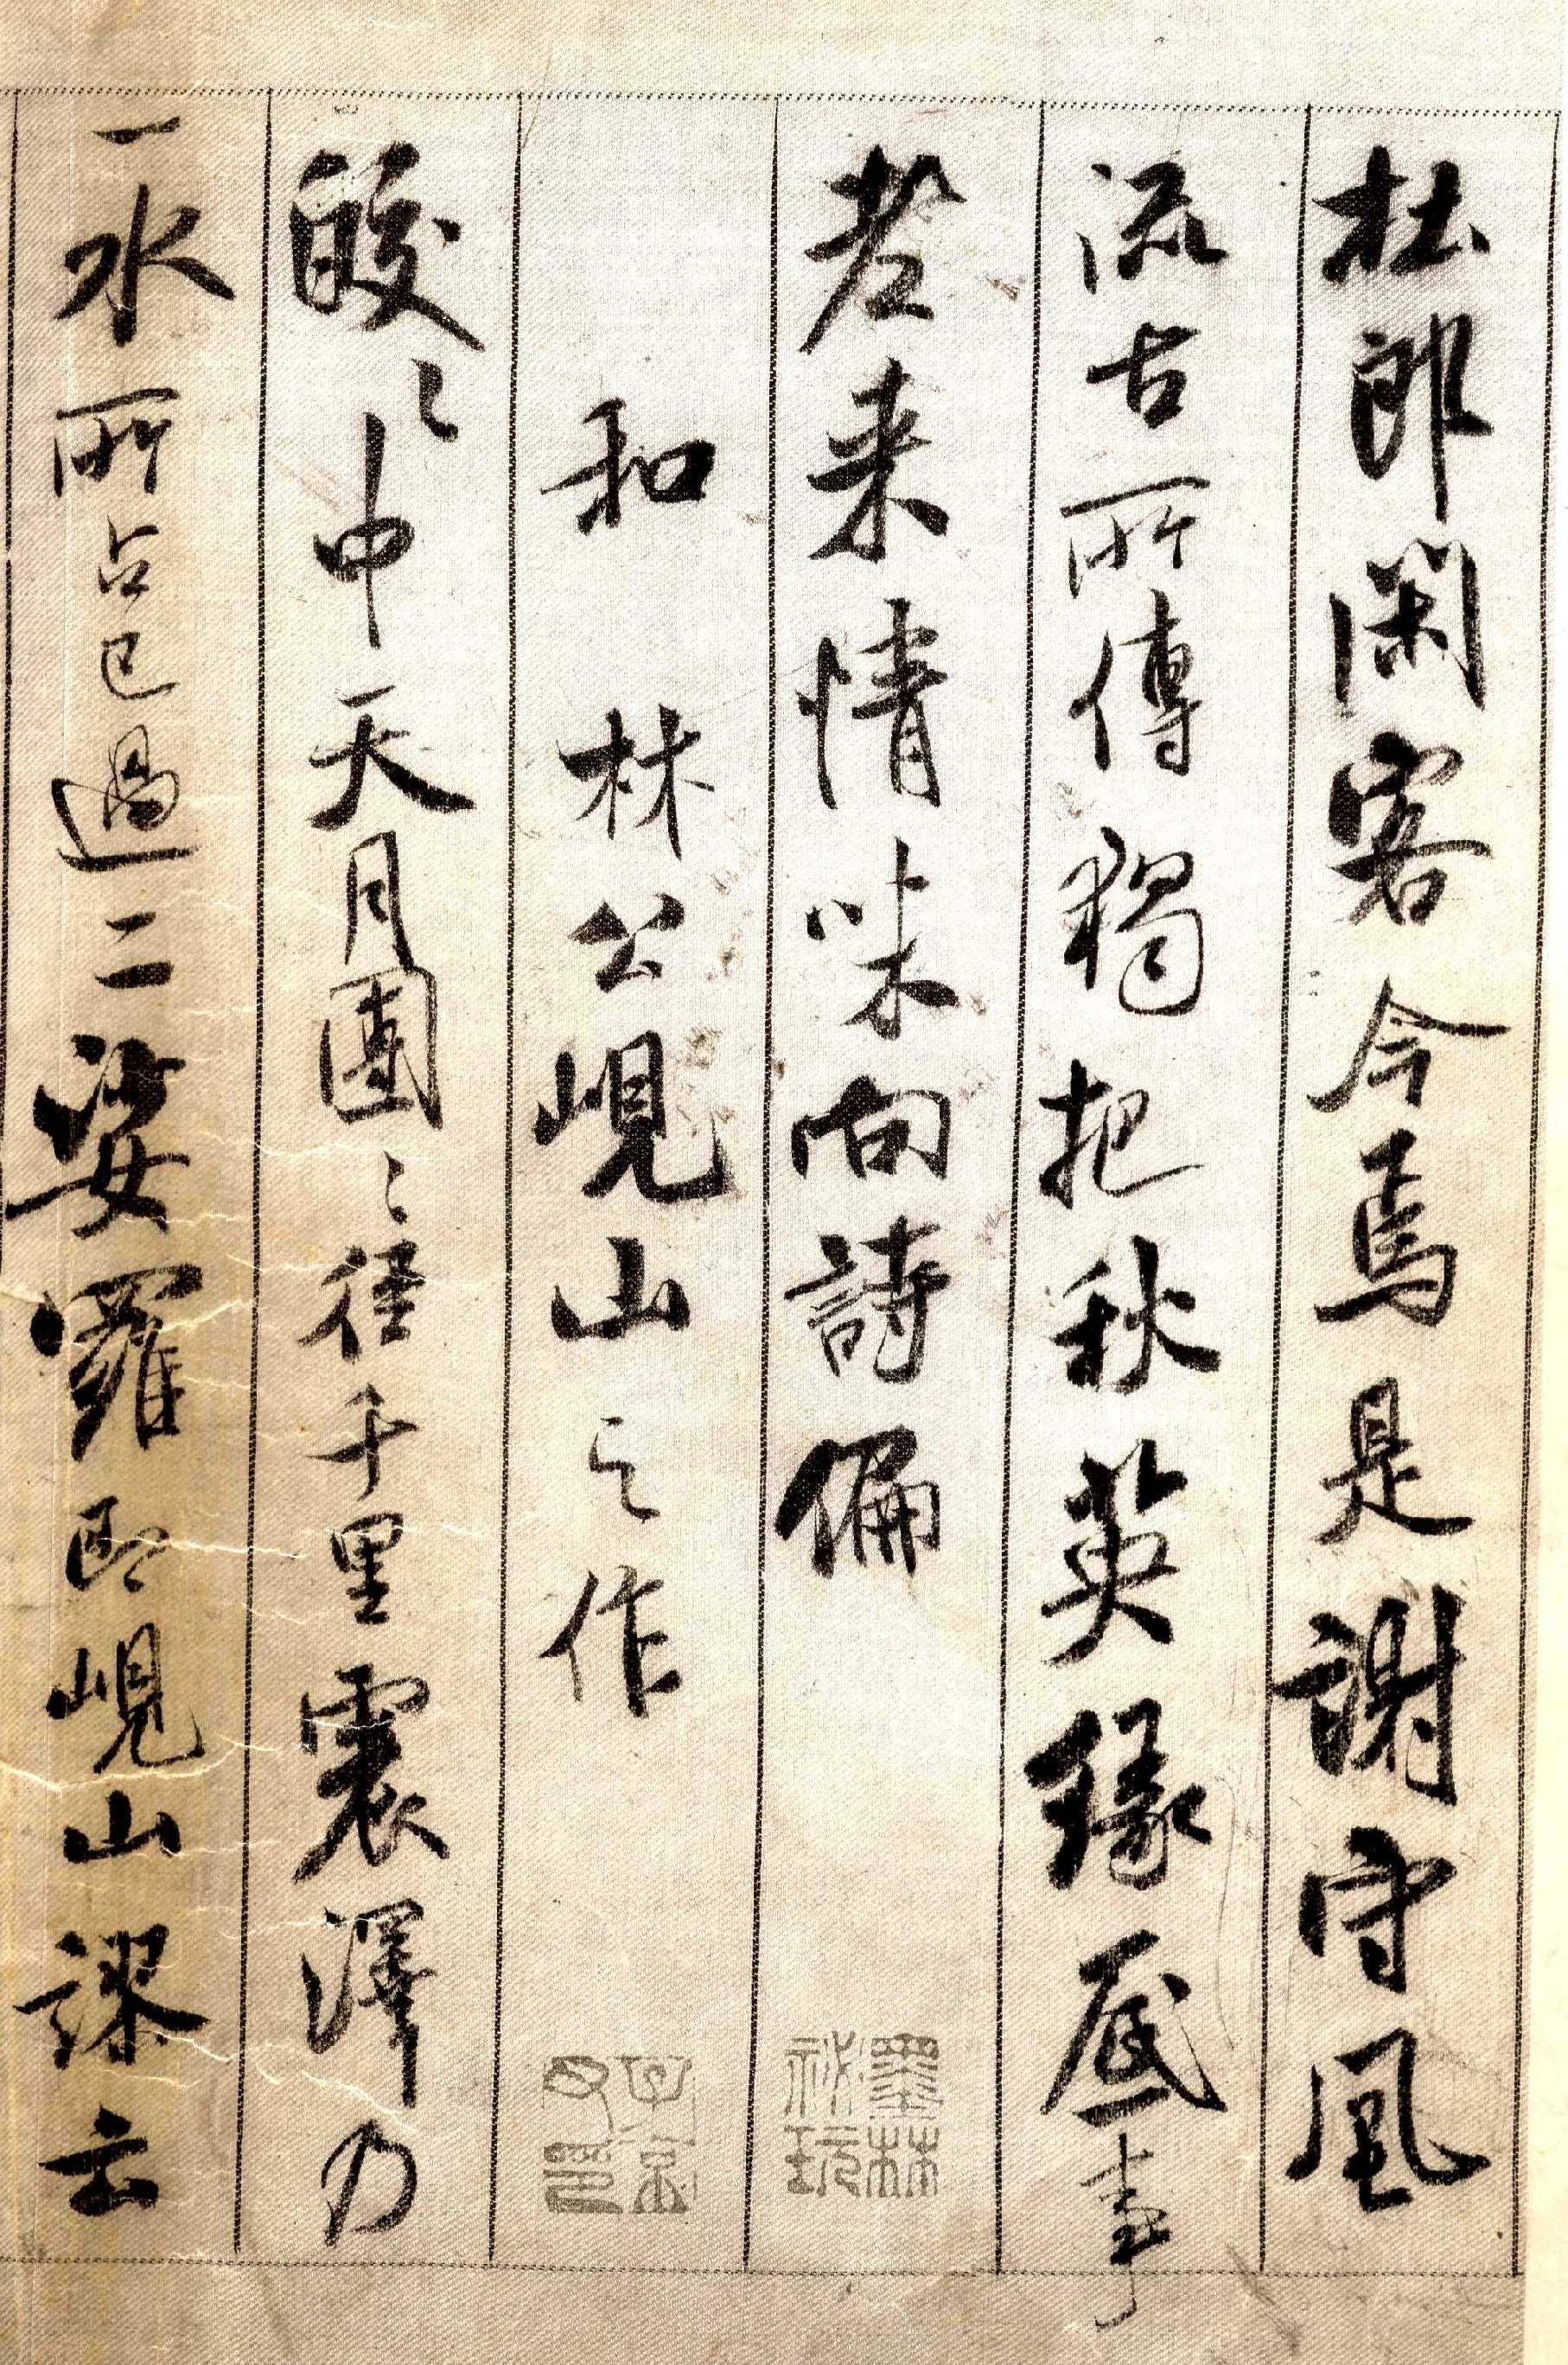 杜郎閑客今焉是謝守風
流古所傳獨把秋英緣底事
老来情味向詩偏
墨林祕玩
和林公峴山之作
子京父印
皎〻中天月團〻徑千里震澤乃
一水所占已過二娑羅即峴山謬云